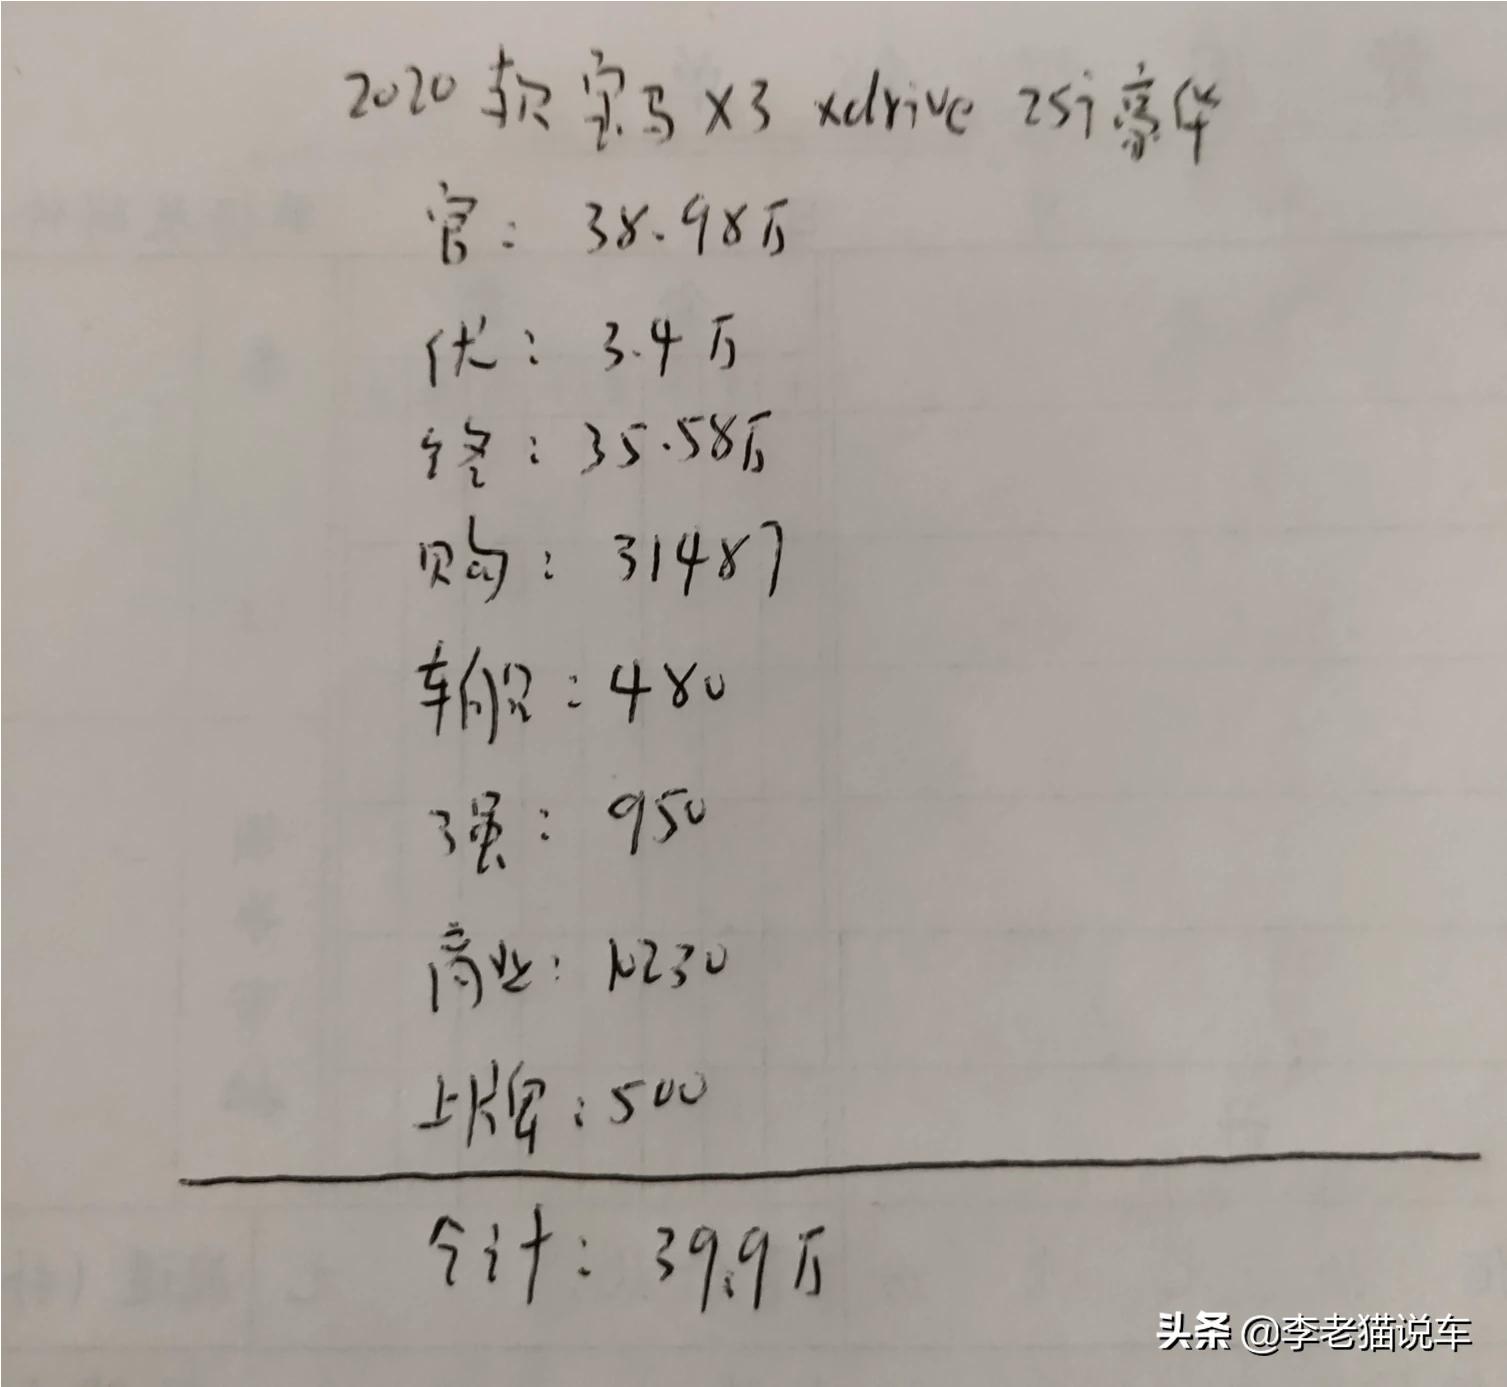 2020款宝马X3 xdrive 25i豪华
官：38.98万
优：3.4万
终：35.58万
购：31487
车船：480
强：950
商业：10230
上牌：500
合计：39.9万
头条 @李老猫说车